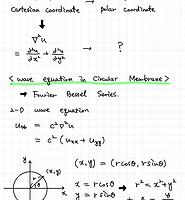 Cartesian coordinate → polar coordinate
↓
∇²u → ?
= ∂²u/∂x² + ∂²u/∂y²
< wave equation in Circular Membrane >
→ Fourier Bessel Series.
2-D wave equation
u_tt = c²∇²u
= c² (u_xx + u_yy)
y
(x,y)
r
θ
x
(x,y) = (r cosθ, r sinθ)
x = r cosθ → r² = x² + y²
y = r sinθ